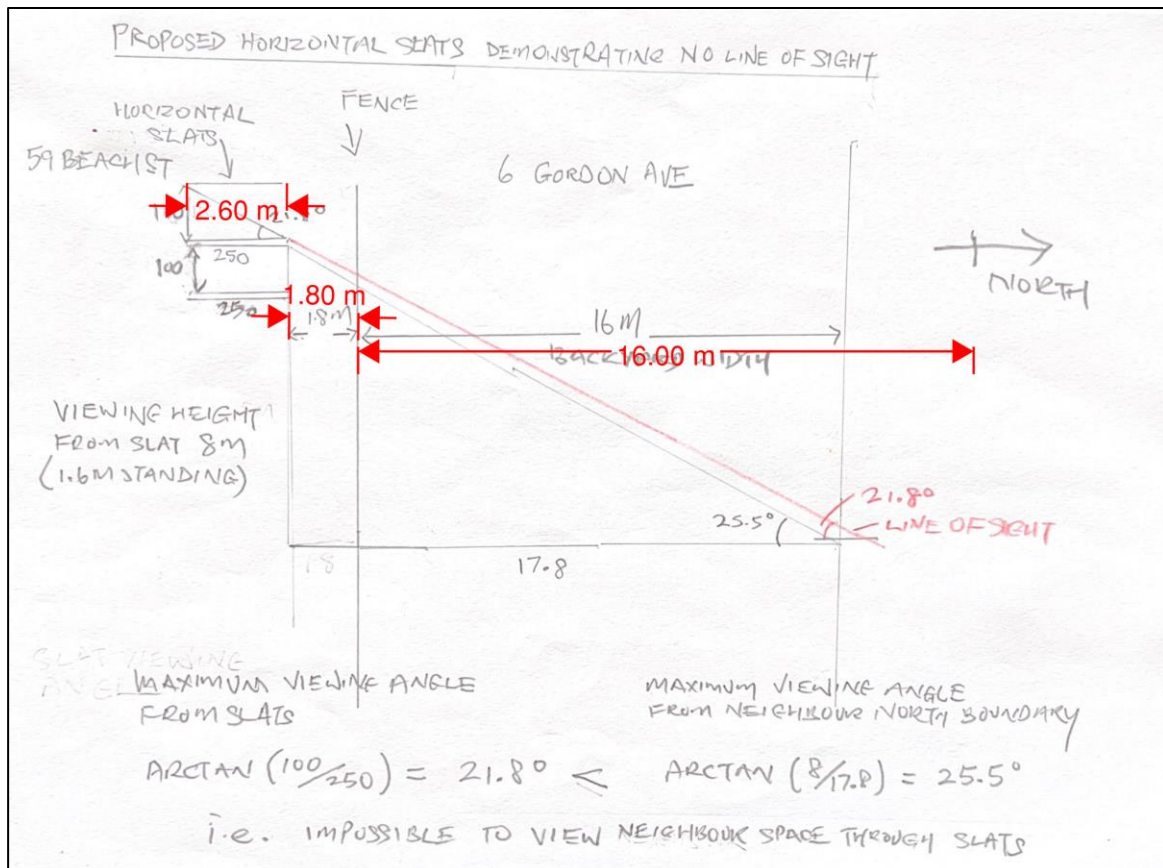 PROPOSED HORIZONTAL SLATS DEMONSTRATING NO LINE OF SIGHT
HORIZONTAL
SLATS
FENCE
59 BEACH ST
6 GORDON AVE
2.60 m
250
100
250
1.80 m
1.8M
NORTH
16M
16.00 m
VIEWING HEIGHT
FROM SLAT 8M
(1.6M STANDING)
21.8°
LINE OF SIGHT
25.5°
1.8
17.8
SLAT VIEWING
MAXIMUM VIEWING ANGLE
FROM SLATS
MAXIMUM VIEWING ANGLE
FROM NEIGHBOUR NORTH BOUNDARY
ARCTAN (100/250) = 21.8° < ARCTAN (8/17.8) = 25.5°
i.e. IMPOSSIBLE TO VIEW NEIGHBOUR SPACE THROUGH SLATS